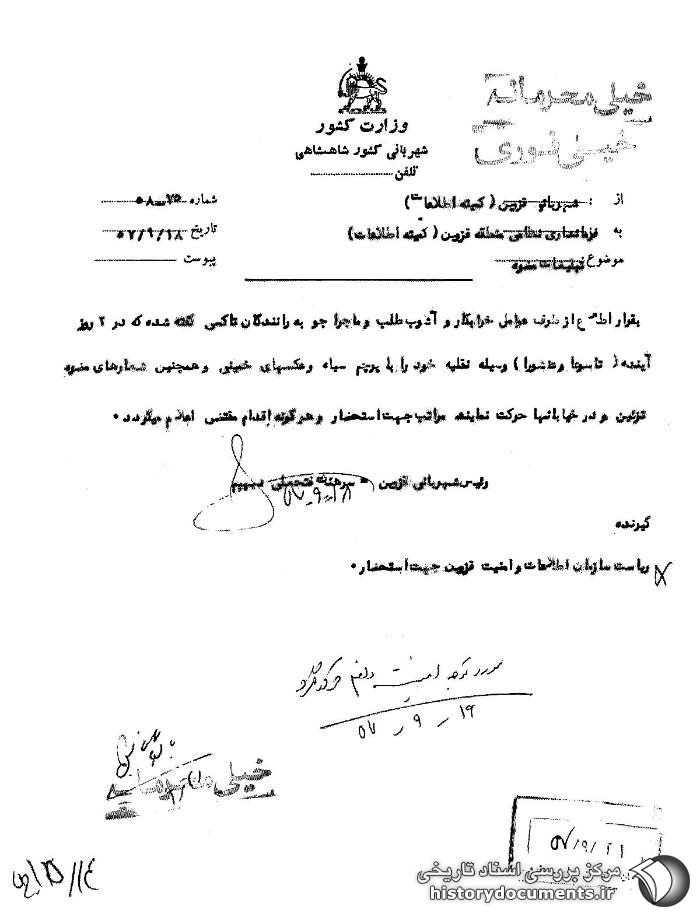 خیلی محرمانه
خیلی فوری
وزارت کشور
شهربانی کشور شاهنشاهی
تلفن
از : شهربانی قزوین ( کمیته اطلاعات )
شماره ۷۵ـ۵۸۰
به فرمانداری نظامی منطقه قزوین ( کمیته اطلاعات )
تاریخ ۵۷/۹/۱۸
موضوع تبلیغات مضره
پیوست
بقرار اطلاع از طرف عوامل خرابکار و آشوب طلب و ماجرا جو به رانندگان تاکسی گفته شده که در ۲ روز
آینده ( تاسوعا و عاشورا ) وسیله نقلیه خود را با پرچم سیاه و عکسهای خمینی و همچنین شعارهای مضره
تزئین و در خیابانها حرکت نمایند مراتب جهت استحضار و هر گونه اقدام مقتضی اعلام میگردد ۰
رئیس شهربانی قزوین = سرهنگ فتحعلی
۵۷ـ۹ـ۱۸
گیرنده
ریاست سازمان اطلاعات و امنیت قزوین جهت استحضار ۰
مورد توجه
۵۷ ـ ۹ ـ ۱۹
خیلی محرمانه
۵۷/۹/۲۱
مرکز بررسی اسناد تاریخی
historydocuments.ir